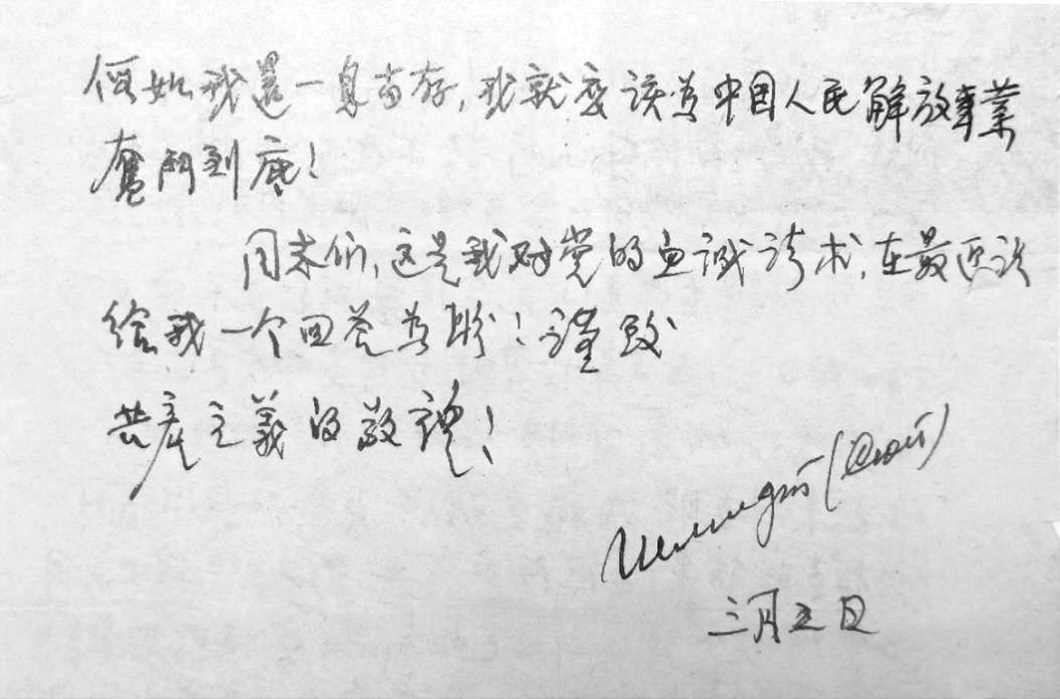 假如我還一息尚存,我就应该为中国人民解放事業
奮鬥到底!
同志们,这是我对党的血诚请求,在最近请
给我一个回答为盼!謹致
共產主義的敬禮!
三月五日